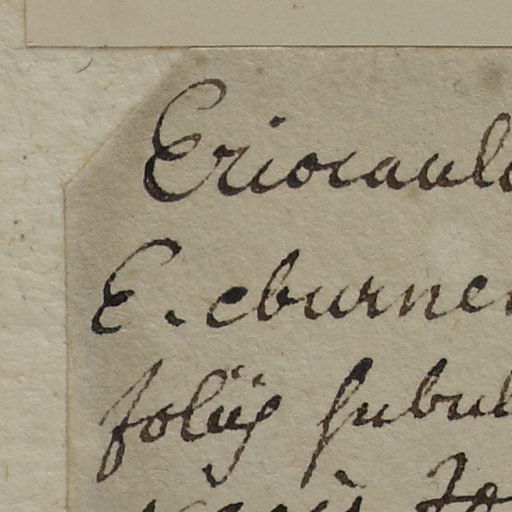 Eriocaulo
E. eburne
foliis subul